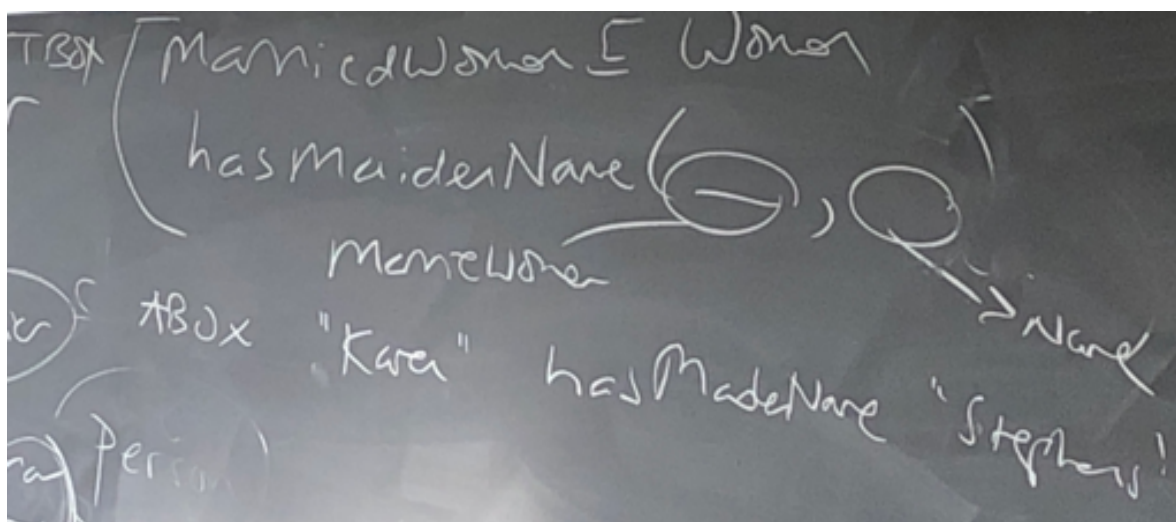 TBOX MarriedWoman ⊑ Woman
hasMaidenName( — , )
MarrieWoman
Name
ABOX "Karen" hasMadeName "Stephens"
Person